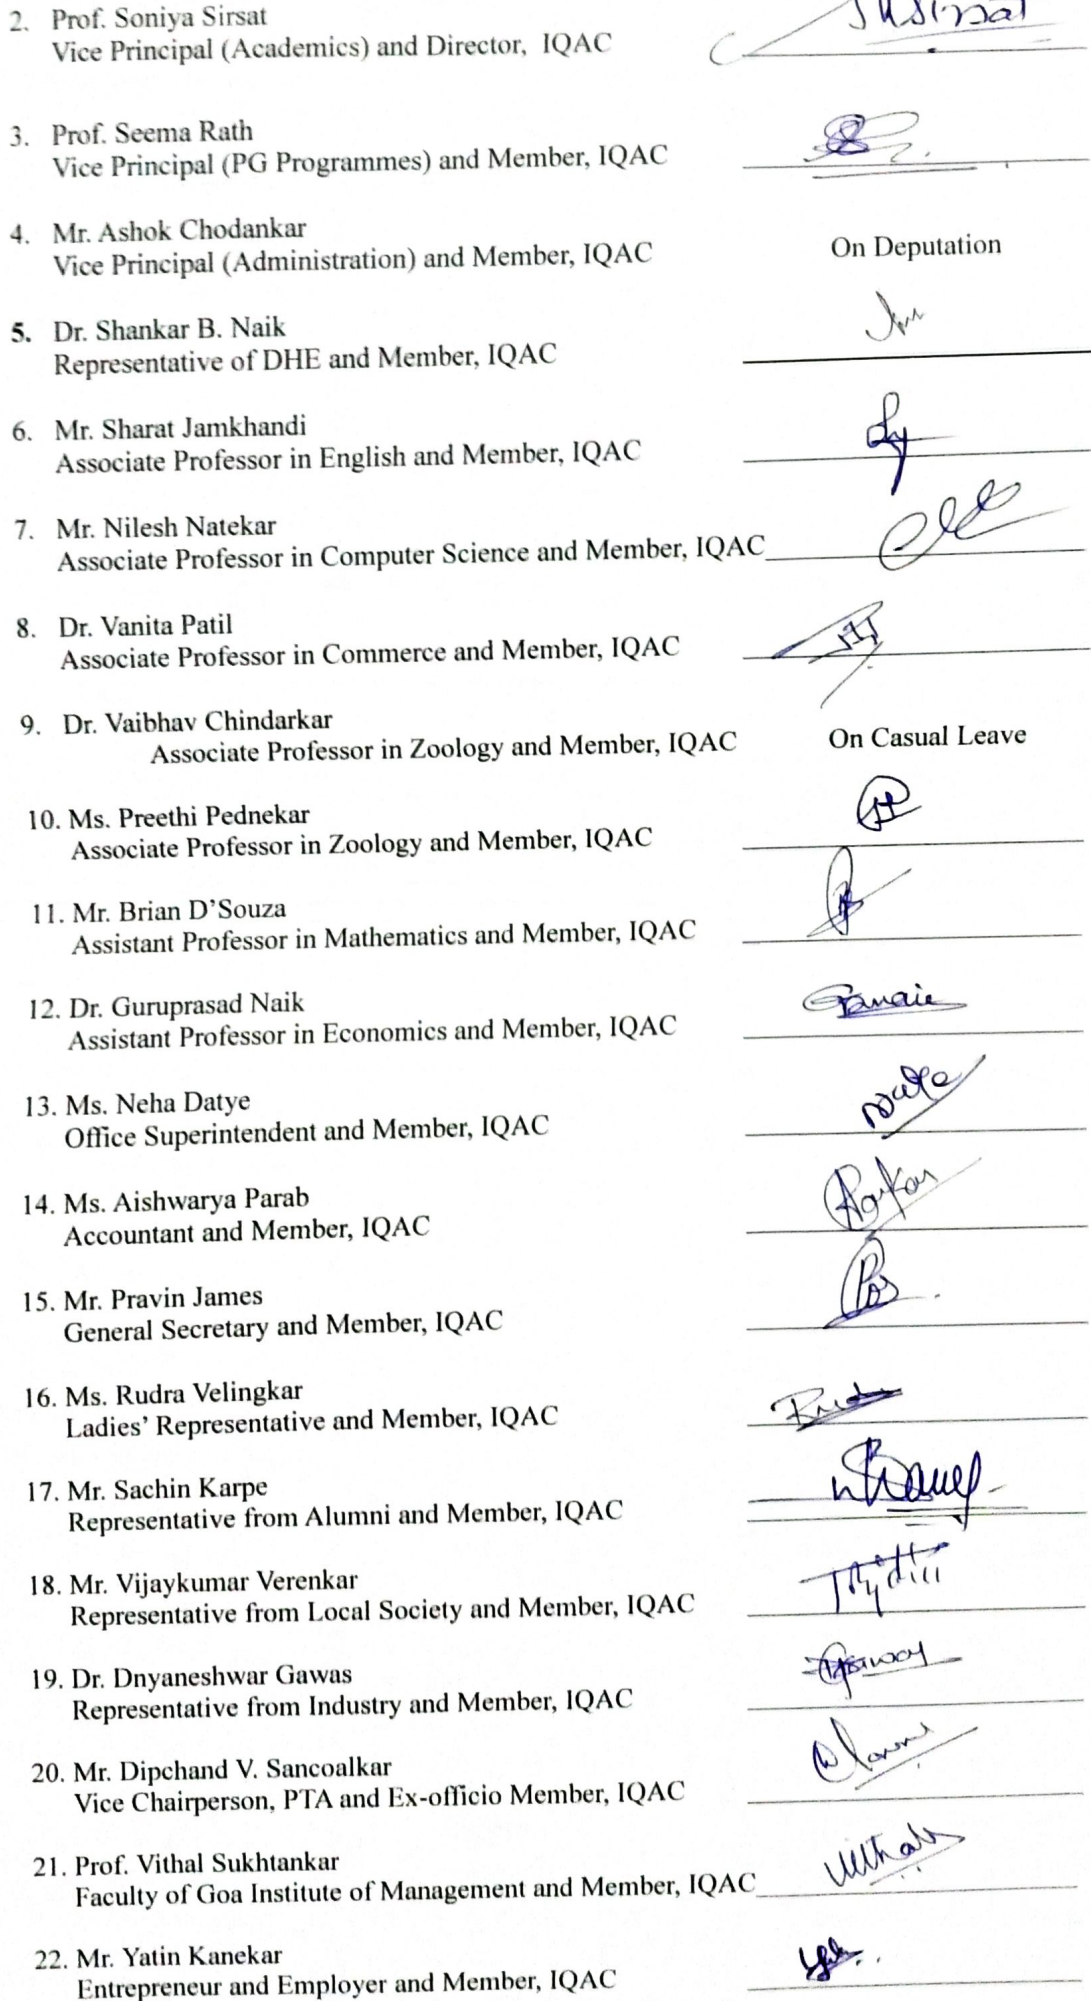 2. Prof. Soniya Sirsat
Vice Principal (Academics) and Director, IQAC
3. Prof. Seema Rath
Vice Principal (PG Programmes) and Member, IQAC
4. Mr. Ashok Chodankar
Vice Principal (Administration) and Member, IQAC On Deputation
5. Dr. Shankar B. Naik
Representative of DHE and Member, IQAC
6. Mr. Sharat Jamkhandi
Associate Professor in English and Member, IQAC
7. Mr. Nilesh Natekar
Associate Professor in Computer Science and Member, IQAC
8. Dr. Vanita Patil
Associate Professor in Commerce and Member, IQAC
9. Dr. Vaibhav Chindarkar
Associate Professor in Zoology and Member, IQAC On Casual Leave
10. Ms. Preethi Pednekar
Associate Professor in Zoology and Member, IQAC
11. Mr. Brian D'Souza
Assistant Professor in Mathematics and Member, IQAC
12. Dr. Guruprasad Naik
Assistant Professor in Economics and Member, IQAC
13. Ms. Neha Datye
Office Superintendent and Member, IQAC
14. Ms. Aishwarya Parab
Accountant and Member, IQAC
15. Mr. Pravin James
General Secretary and Member, IQAC
16. Ms. Rudra Velingkar
Ladies' Representative and Member, IQAC
17. Mr. Sachin Karpe
Representative from Alumni and Member, IQAC
18. Mr. Vijaykumar Verenkar
Representative from Local Society and Member, IQAC
19. Dr. Dnyaneshwar Gawas
Representative from Industry and Member, IQAC
20. Mr. Dipchand V. Sancoalkar
Vice Chairperson, PTA and Ex-officio Member, IQAC
21. Prof. Vithal Sukhtankar
Faculty of Goa Institute of Management and Member, IQAC
22. Mr. Yatin Kanekar
Entrepreneur and Employer and Member, IQAC